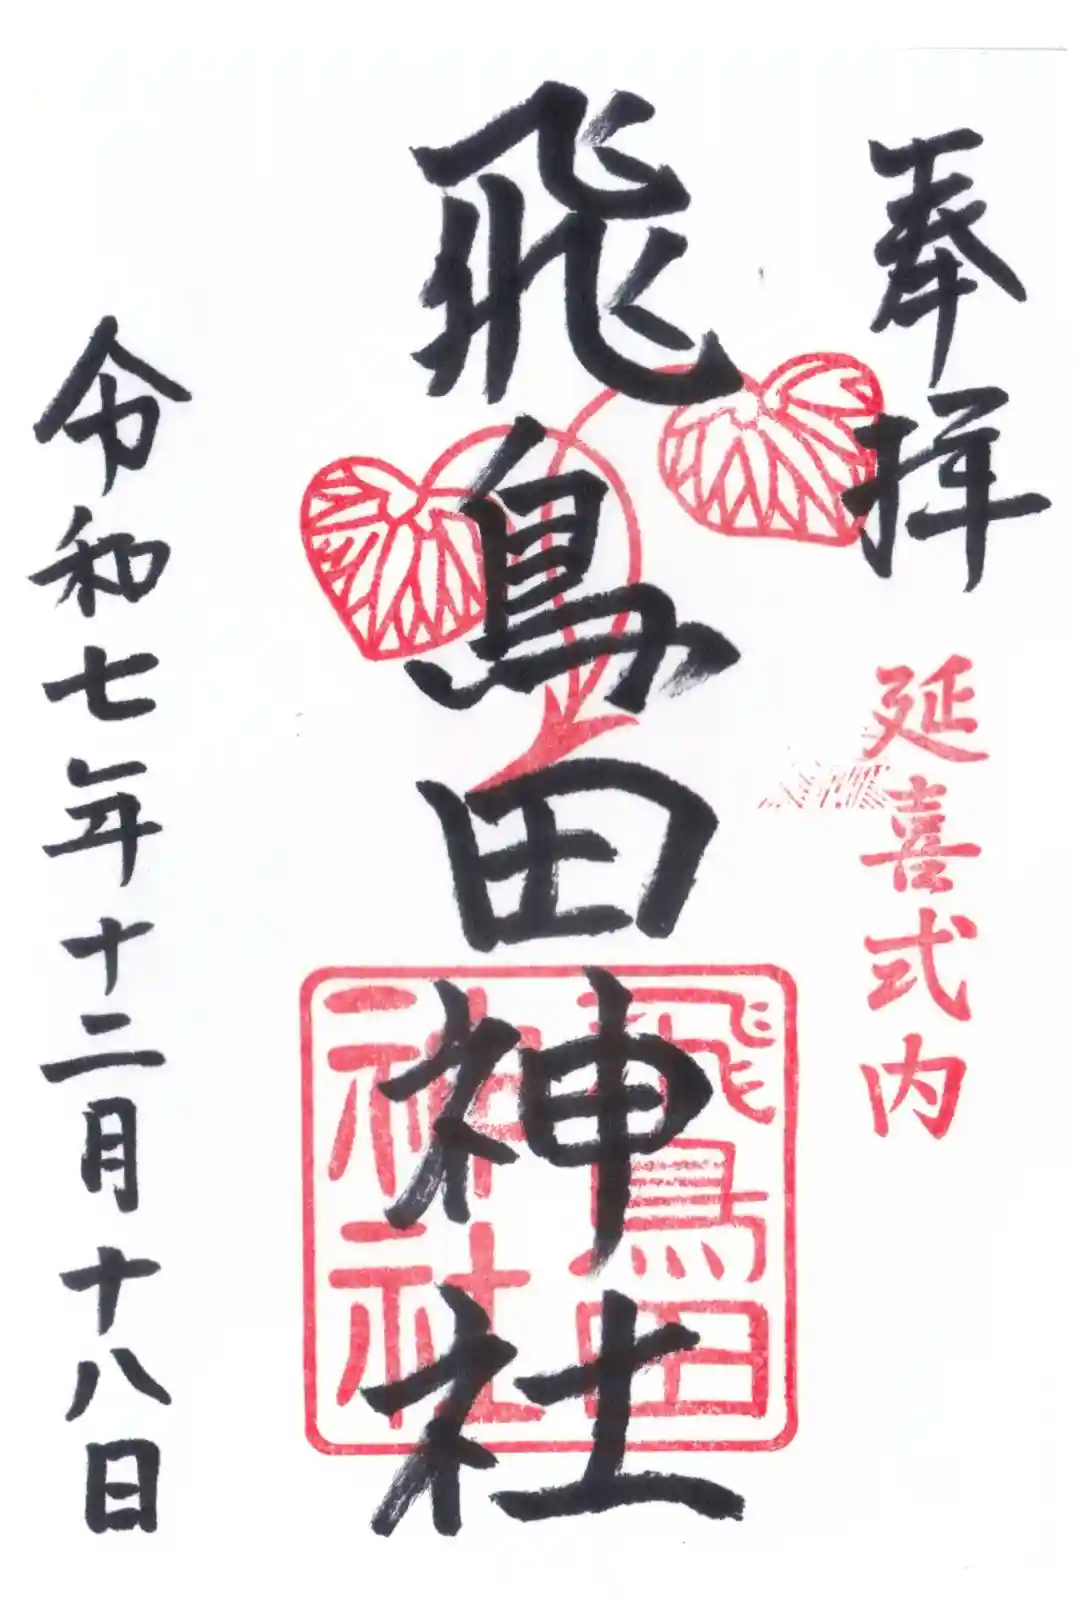 奉拝
延喜式内
飛鳥田神社
飛鳥田
神社
令和七年十二月十八日